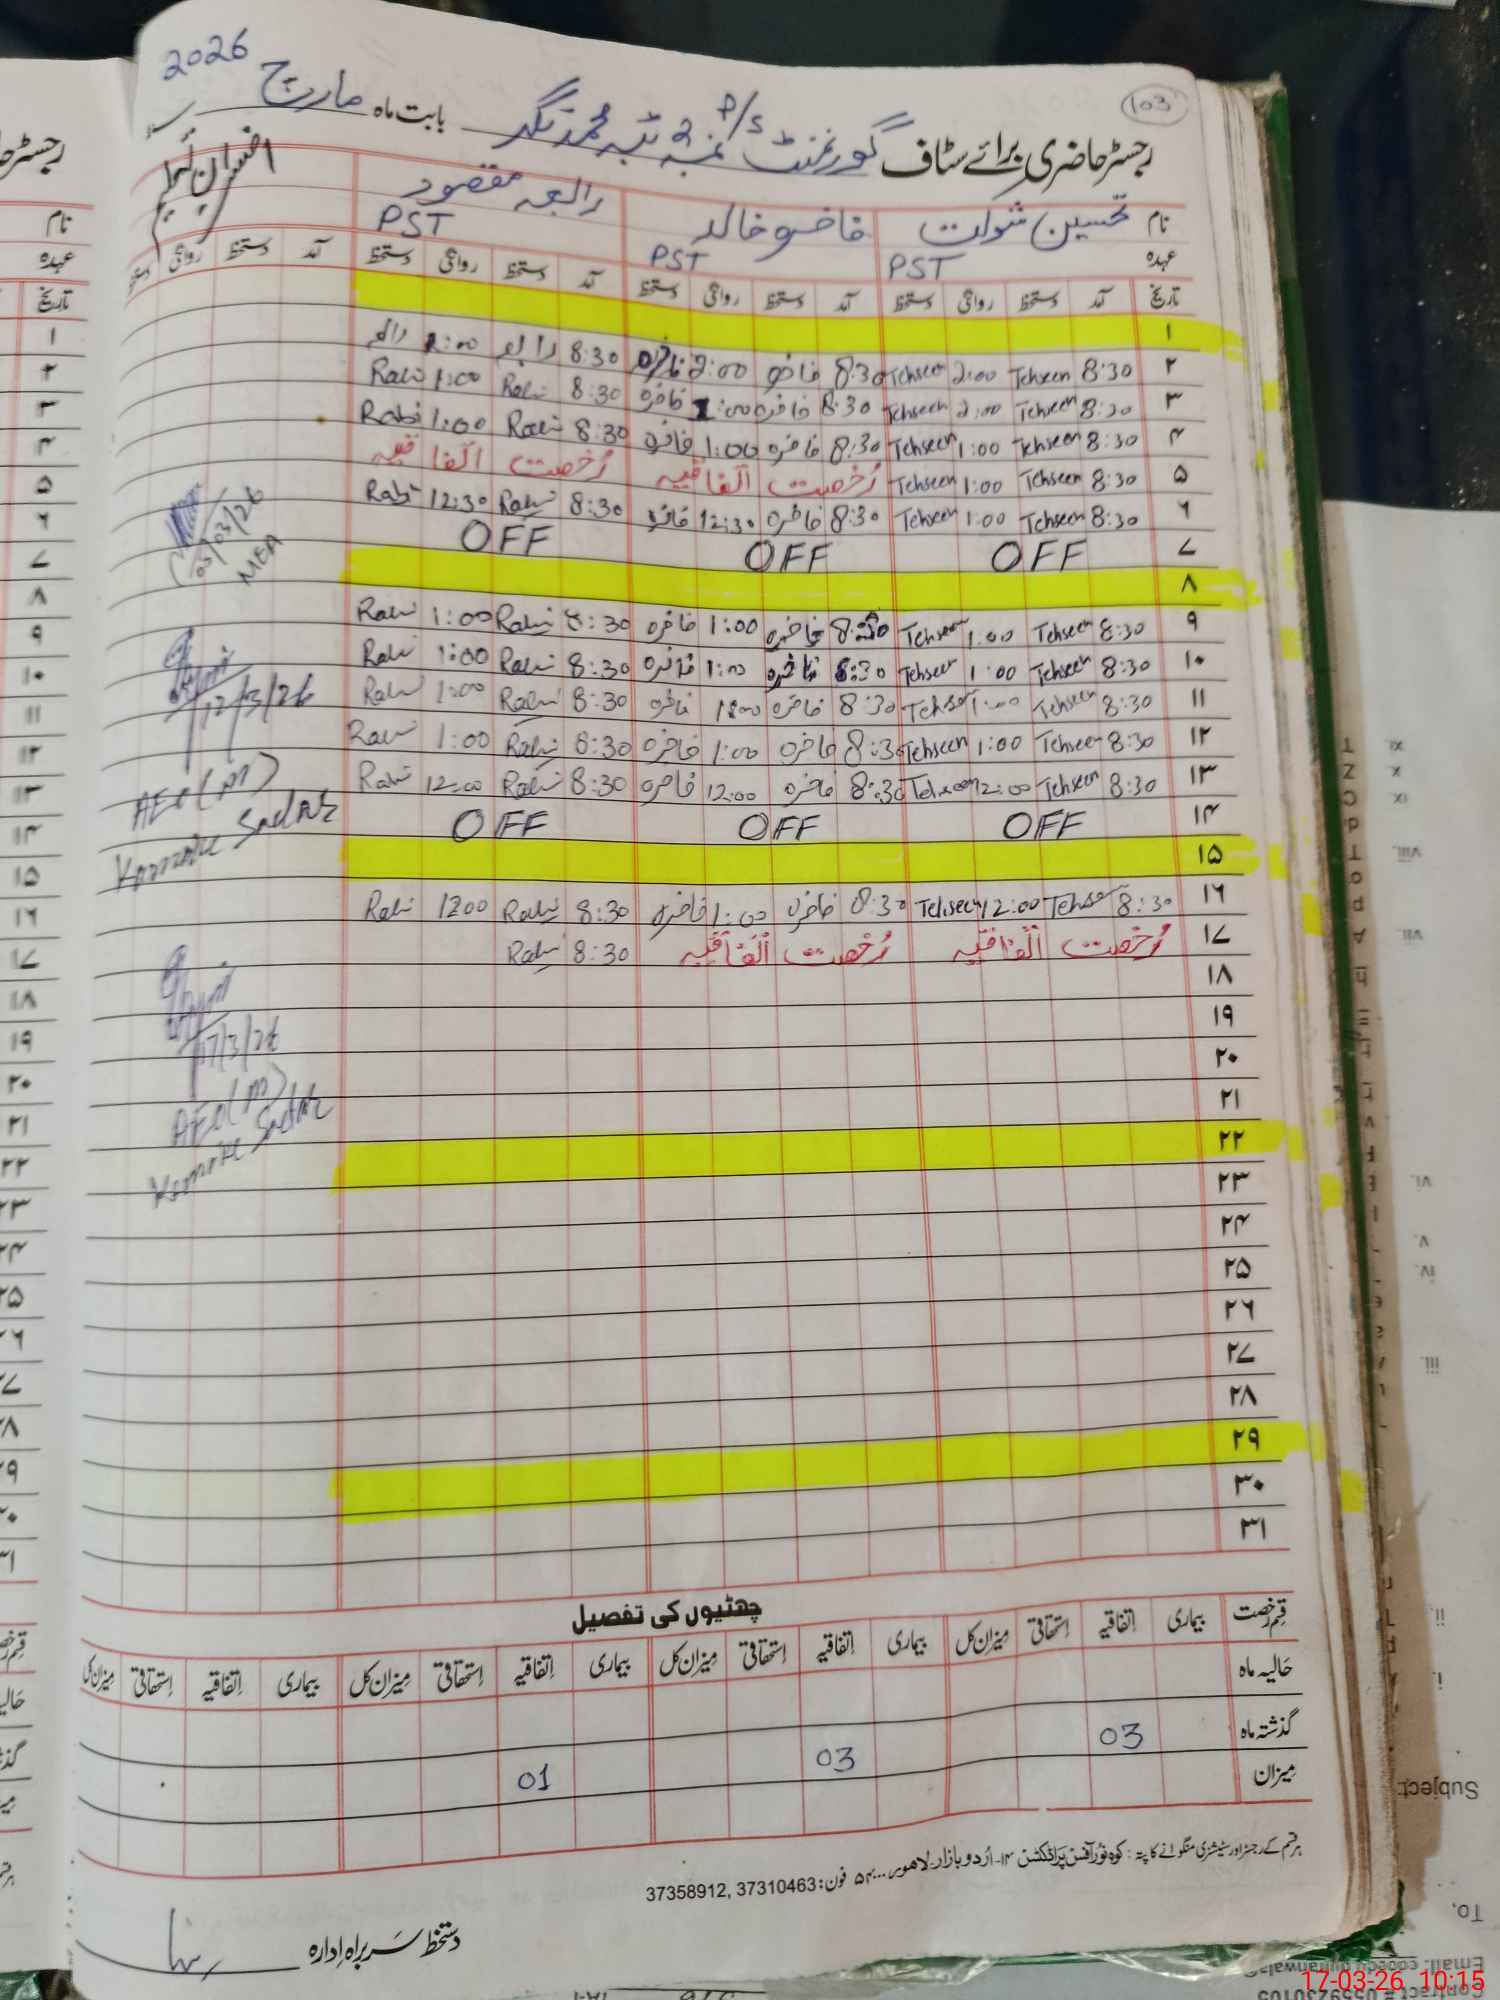 2026
103
رجسٹر حاضری برائے سٹاف گورنمنٹ P/S نمبر 2 ٹبہ محمد نگر بابت ماہ مارچ
نام تحسین شوکت فاخرہ خالد رابعہ مقصود افسران تعلیم
عہدہ PST PST PST
تاریخ آمد دستخط روانگی دستخط آمد دستخط روانگی دستخط آمد دستخط روانگی دستخط آمد دستخط روانگی دستخط
۱
۲ 8:30 Tehseen 2:00 Tehseen 8:30 فاخرہ 2:00 فاخرہ 8:30 رابعہ 2:00 رابعہ
۳ 8:30 Tehseen 2:00 Tehseen 8:30 فاخرہ 1:00 فاخرہ 8:30 Rabi 1:00 Rabi
۴ 8:30 Tehseen 1:00 Tehseen 8:30 فاخرہ 1:00 فاخرہ 8:30 Rabi 1:00 Rabi
۵ 8:30 Tehseen 1:00 Tehseen رُخصت اتفاقیہ رُخصت اتفاقیہ
۶ 8:30 Tehseen 1:00 Tehseen 8:30 فاخرہ 12:30 فاخرہ 8:30 Rabi 12:30 Rabi
03/03/26
MEA
۷ OFF OFF OFF
۸
۹ 8:30 Tehseen 1:00 Tehseen 8:30 فاخرہ 1:00 فاخرہ 8:30 Rabi 1:00 Rabi
۱۰ 8:30 Tehseen 1:00 Tehseen 8:30 فاخرہ 1:00 فاخرہ 8:30 Rabi 1:00 Rabi
12/3/26
۱۱ 8:30 Tehseen 1:00 Tehseen 8:30 فاخرہ 1:00 فاخرہ 8:30 Rabi 1:00 Rabi
۱۲ 8:30 Tehseen 1:00 Tehseen 8:30 فاخرہ 1:00 فاخرہ 8:30 Rabi 1:00 Rabi
۱۳ 8:30 Tehseen 12:00 Tehseen 8:30 فاخرہ 12:00 فاخرہ 8:30 Rabi 12:00 Rabi
AEO (M)
۱۴ OFF OFF OFF
Kamoke Sadar
۱۵
۱۶ 8:30 Tehseen 12:00 Tehseen 8:30 فاخرہ 1:00 فاخرہ 8:30 Rabi 1200 Rabi
۱۷ رُخصت اتفاقیہ رُخصت اتفاقیہ 8:30 Rabi
۱۸
۱۹
17/3/26
۲۰
AEO (M)
۲۱
Kamoke Sadar
۲۲
۲۳
۲۴
۲۵
۲۶
۲۷
۲۸
۲۹
۳۰
۳۱
چھٹیوں کی تفصیل
قسم رخصت بیماری اتفاقیہ استحقاقی میزان کل بیماری اتفاقیہ استحقاقی میزان کل بیماری اتفاقیہ استحقاقی میزان کل بیماری اتفاقیہ استحقاقی میزان کل
حالیہ ماہ
گذشتہ ماہ 03 03 01
میزان
ہر قسم کے رجسٹر اور سٹیشنری منگوانے کا پتہ : کوہ نور آفس پراڈکشن ۱۴- اُردو بازار لاہور ۵۴۰۰۰ فون: 37310463, 37358912
دستخط سربراہ ادارہ
Subject:
To,
17-03-26 10:15